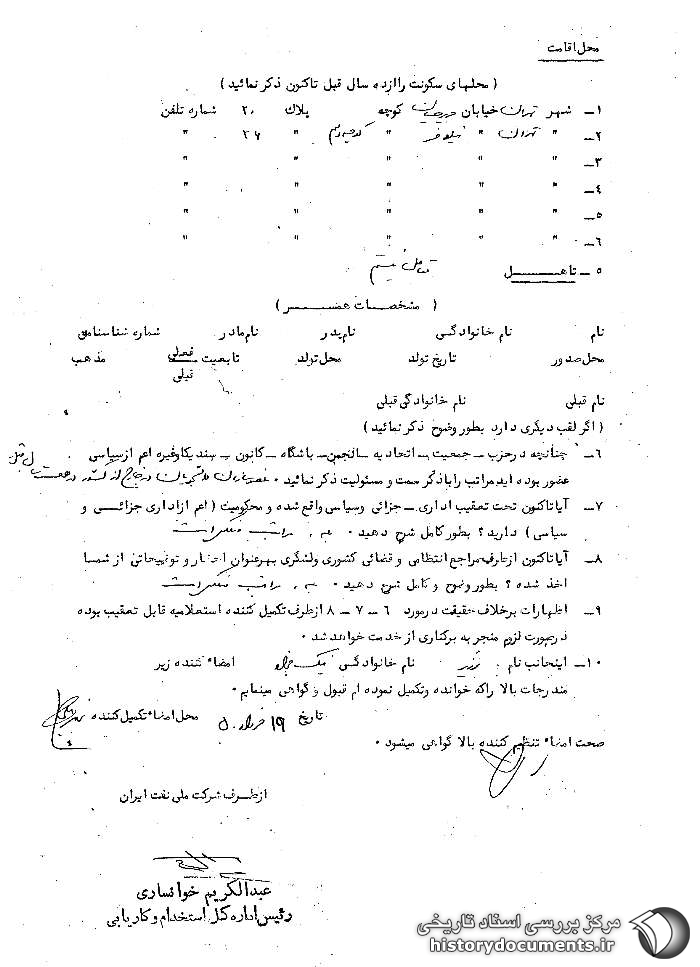 محل اقامت
( محلهای سکونت را از ده سال قبل تاکنون ذکر نمائید )
۱ـ شهر تهران خیابان کوچه پلاک ۲۰ شماره تلفن
۲ـ " تهران " نیلوفر " کوچه دوم " ۲۶ "
۳ـ " " " " "
۴ـ " " " " "
۵ـ " " " " "
۶ـ " " " " "
۵ ـ تاهل متاهل نیستم
( مشخصات همسر )
نام نام خانوادگی نام پدر نام مادر شماره شناسنامه
محل صدور تاریخ تولد محل تولد تابعیت فعلی مذهب
قبلی
نام قبلی نام خانوادگی قبلی
( اگر لقب دیگری دارد بطور وضوح ذکر نمائید )
۶ـ چنانچه در حزب ـ جمعیت ـ اتحادیه ـ انجمن ـ باشگاه ـ کانون ـ سندیکا و غیره اعم از سیاسی
عضور بوده اید مراتب را با ذکر سمت و مسئولیت ذکر نمائید . دانشجویان در خارج از کشور در
۷ـ آیا تاکنون تحت تعقیب اداری ـ جزائی و سیاسی واقع شده و محکومیت ( اعم از اداری جزائی و
سیاسی ) دارید ؟ بطور کامل شرح دهید . مراتب منعکس است
۸ـ آیا تاکنون از طرف مراجع انتظامی و قضائی کشوری و لشگری بهر عنوان احضار و توضیحاتی از شما
اخذ شده ؟ بطور وضوح و کامل شرح دهید . مراتب منعکس است
۹ـ اظهارات بر خلاف حقیقت در مورد ۶ ـ ۷ ـ ۸ از طرف تکمیل کننده استعلامیه قابل تعقیب بوده
در صورت لزوم منجر به برکناری از خدمت خواهد شد .
۱۰ـ اینجانب نام نام خانوادگی نیکخواه امضاء کننده زیر
مندرجات بالا را که خوانده و تکمیل نموده ام قبول و گواهی مینمایم .
تاریخ ۱۹ خرداد ۵۰ محل امضاء تکمیل کننده
صحت امضاء تنظیم کننده بالا گواهی میشود .
از طرف شرکت ملی نفت ایران
عبدالکریم خوانساری
رئیس اداره کل استخدام و کاریابی
مرکز بررسی اسناد تاریخی
historydocuments.ir